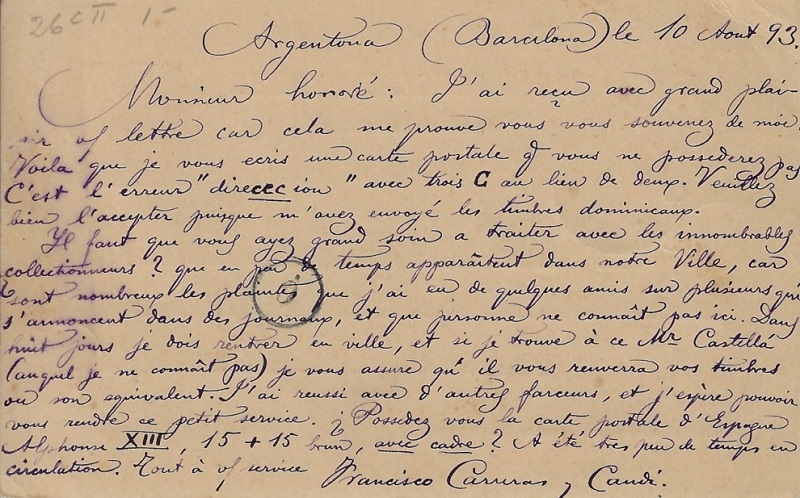 26 c II 1-
Argentona (Barcelona) le 10 Aout 93.
Monsieur honoré: J'ai reçu avec grand plai-
sir v/ lettre car cela me prouve vous vous souvenez de moi.
Voila que je vous ecris une carte postale q vous ne possederez pas
C'est l'erreur "direcccion" avec trois C au lieu de deux. Veuillez
bien l'accepter puisque m'avez envoyé les timbres dominicaux.
Il faut que vous ayez grand soin a traiter avec les innombrables
collectionneurs? que en peu de temps apparaîtrent dans notre Ville, car
sont nombreux les plaintes que j'ai eu de quelques amis sur plusieurs qui
s'annoncent dans des journaux, et que personne ne connaît pas ici. Dans
huit jours je dois rentrer en ville, et si je trouve à ce Mr Castellá
(auquel je ne connaît pas) je vous assure qu'il vous renverra vos timbres
ou son equivalent. J'ai reussi avec d'autres farceurs, et j'espère pouvoir
vous rendre ce petit service. ¿Possedez vous la carte postale d'Espagne
Alphonse XIII, 15 + 15 brun, avec cadre? A été tres peu de temps en
circulation. Tout à v/ service Francisco Carreras y Candi.